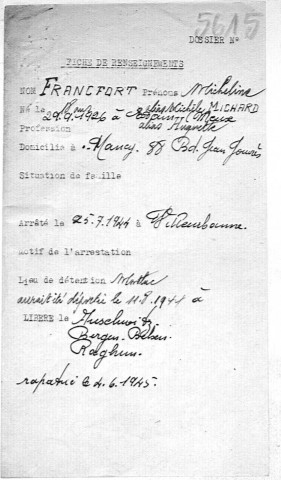 5615
DOSSIER N°
FICHE DE RENSEIGNEMENTS
NOM FRANCFORT Prénoms Micheline
alias Michèle MICHARD
Né le 29.9.1926 à
alias Huguette
Profession
Domicilié à Nancy, 88 Bd. Jean Jaurès
Situation de famille
Arrêté le 25.7.1944 à Villeurbanne.
Motif de l'arrestation
Lieu de détention Montluc
aurait été déporté le 11.8.1944 à
LIBERE le Auschwitz
Bergen-Belsen
Raghun.
rapatrié le 4.6.1945.